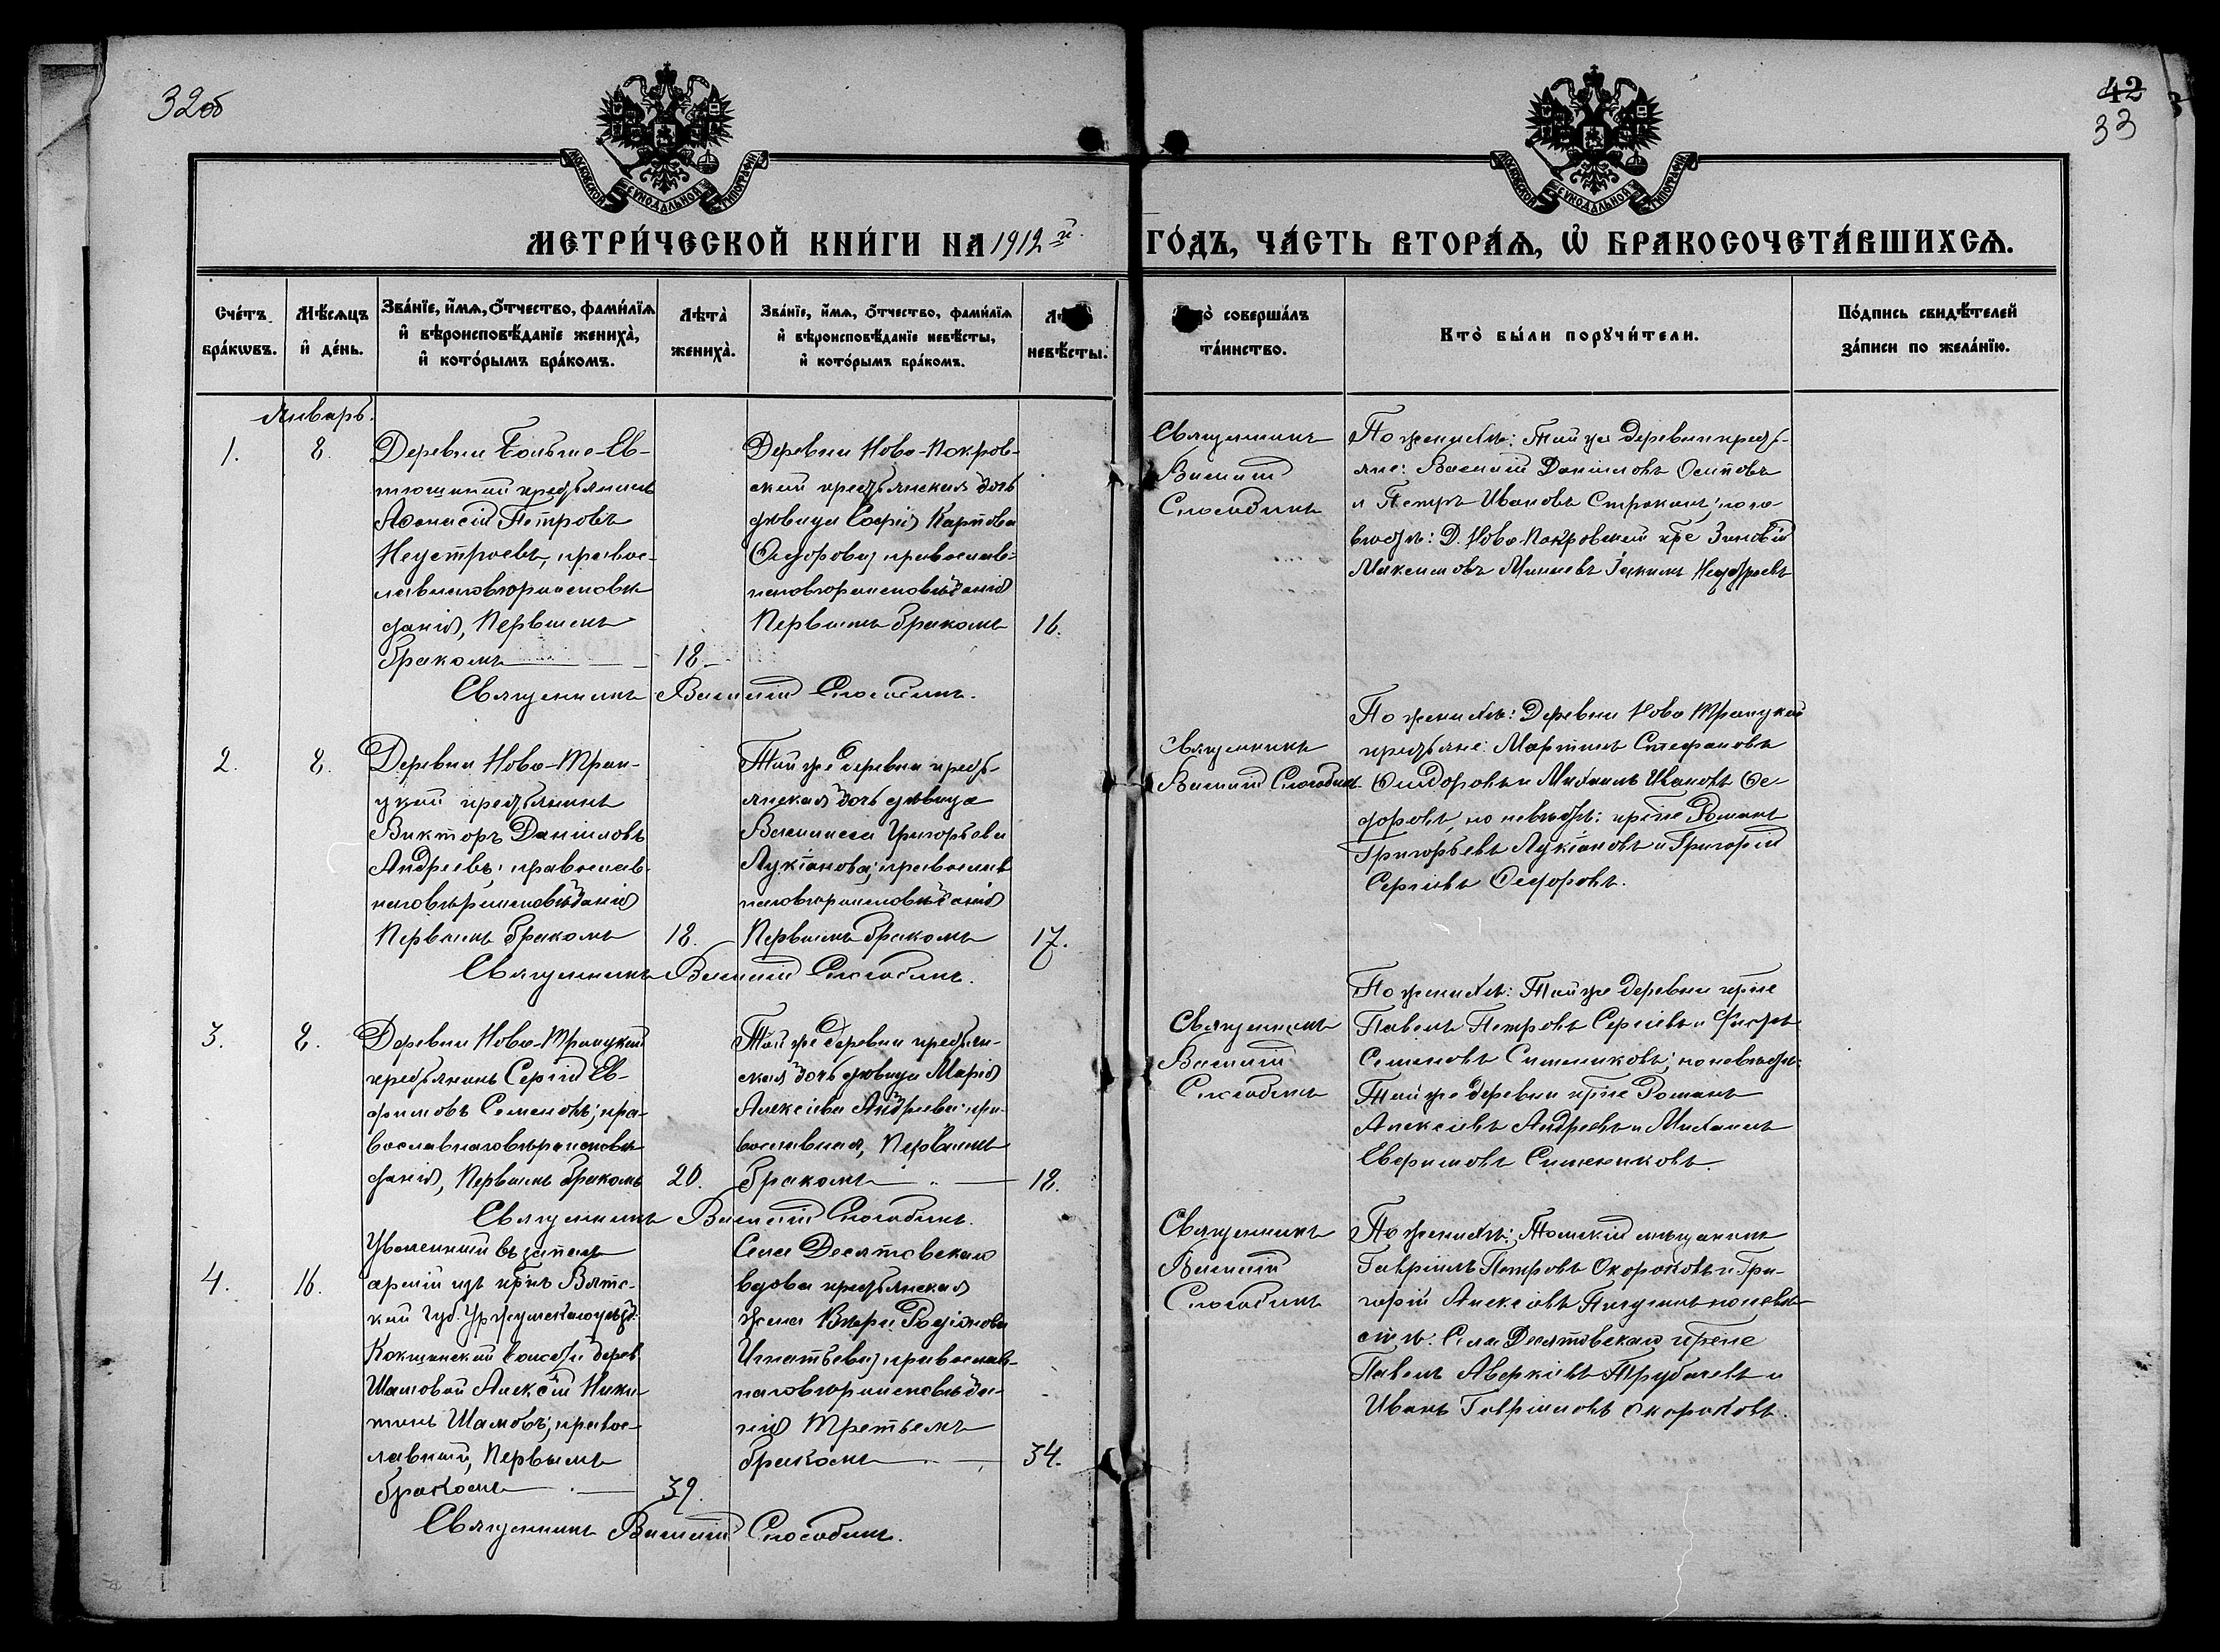 32об
42
33
МОСКОВСКОЙ СѴНОДАЛЬНОЙ ТИПОГРАФІИ
МОСКОВСКОЙ СѴНОДАЛЬНОЙ ТИПОГРАФІИ
МЕТРИ́ЧЕСКОЙ КНИ́ГИ НА 1912й ГО́ДЪ, ЧА́СТЬ ВТОРА́Ѧ, Ѡ҆ БРАКОСОЧЕТА́ВШИХСѦ.
Сче́тъ
бра́кωвъ.
Мѣ́сѧцъ
и҆ де́нь.
Зва́нїе, и҆́мѧ, ѻ҆́тчество, фами́лїѧ
и҆ вѣроисповѣ́данїе жениха̀,
и҆ кото́рымъ бра́комъ.
Лѣта̀
жениха̀.
Зва́нїе, и҆́мѧ, ѻ҆́тчество, фами́лїѧ
и҆ вѣроисповѣ́данїе невѣ́сты,
и҆ кото́рымъ бра́комъ.
невѣ́сты.
совершáлъ
та́инство.
Кто̀ бы́ли порꙋчи́тели.
По́дпись свидѣ́телей
за́писи по жела́нїю.
Январь.
1.
8.
Деревни Больше-Ев-
крестьянинъ
Аѳанасій Петровъ
Неустроевъ, правос-
лавнаго вѣроисповѣ-
данія, Первымъ
бракомъ
18
Деревни Ново-Покров-
ской крестьянская дочь
дѣвица Софія Карпова
Ѳедорова, православ-
наго вѣроисповѣданія
Первымъ бракомъ
16.
Священникъ
Василій
Слободинъ
По женихѣ: Той же деревни кресть-
яне: Василій Даниловъ Осиповъ
и Петръ Ивановъ по не-
вѣстѣ: Д. Ново-Покровской кре Зиновій
Максимовъ Минаевъ Іакимъ
Священникъ Василій Слободинъ.
2.
8.
Деревни Ново-Трои-
цкой крестьянинъ
Викторъ Даниловъ
Андреевъ; православ-
наго вѣроисповѣданія
Первымъ бракомъ
18.
Той же деревни кресть-
янская дочь дѣвица
Василиса Григорьева
Лукіанова; православ
наго вѣроисповѣданія
Первымъ бракомъ
17.
Священникъ
Василій Слободинъ.
По женихѣ: Деревни Ново Троицкой
крестьяне: Мартинъ Стефановъ
Сидоровъ и Михаилъ Ивановъ Ѳе-
доровъ, по невѣстѣ: кр̃не Романъ
Григорьевъ Лукіановъ и Григорій
Сергіевъ Ѳедоровъ.
Священникъ Василій Слободинъ.
3.
8.
Деревни Ново-Троицкой
крестьянинъ Сергій Ев-
фимовъ Семеновъ; пра-
вославнаго вѣроисповѣ
данія, Первымъ бракомъ
20.
Той же деревни крестьян-
ская дочь дѣвица Марія
Алексіева Андреева; пра-
вославная, Первымъ
бракомъ
18.
Священникъ
Василій
Слободинъ
По женихѣ: Той же деревни кр̃не
Павелъ Петровъ Сергіевъ и
Семеновъ Ситниковъ; по невѣстѣ:
Той же деревни кр̃не Романъ
Алексіевъ Андреевъ и Михаилъ
Евфимовъ Ситниковъ.
Священникъ Василій Слободинъ.
4.
16.
Уволенный въ запасъ
арміи изъ кр̃нъ Вятс-
кой губ. Уржумскаго уѣзд.
Кокшинской волости дерев.
Шамовой Алексій Ники-
тинъ Шамовъ; правос-
лавный, Первымъ
бракомъ
39.
Села Десятовскаго
вдова крестьянская
жена Вѣра Родіонова
Игнатьева, православ-
наго вѣроисповѣда-
нія Третьемъ
бракомъ
34.
Священникъ
Василій
Слободинъ
По женихѣ: Томскій мѣщанинъ
Гавріилъ Петровъ Окороковъ и Гри-
горій Алексіевъ по невѣ-
стѣ: Села Десятовскаго кр̃не
Павелъ Аверкіевъ Трубачевъ и
Иванъ Гавріиловъ Окороковъ.
Священникъ Василій Слободинъ.